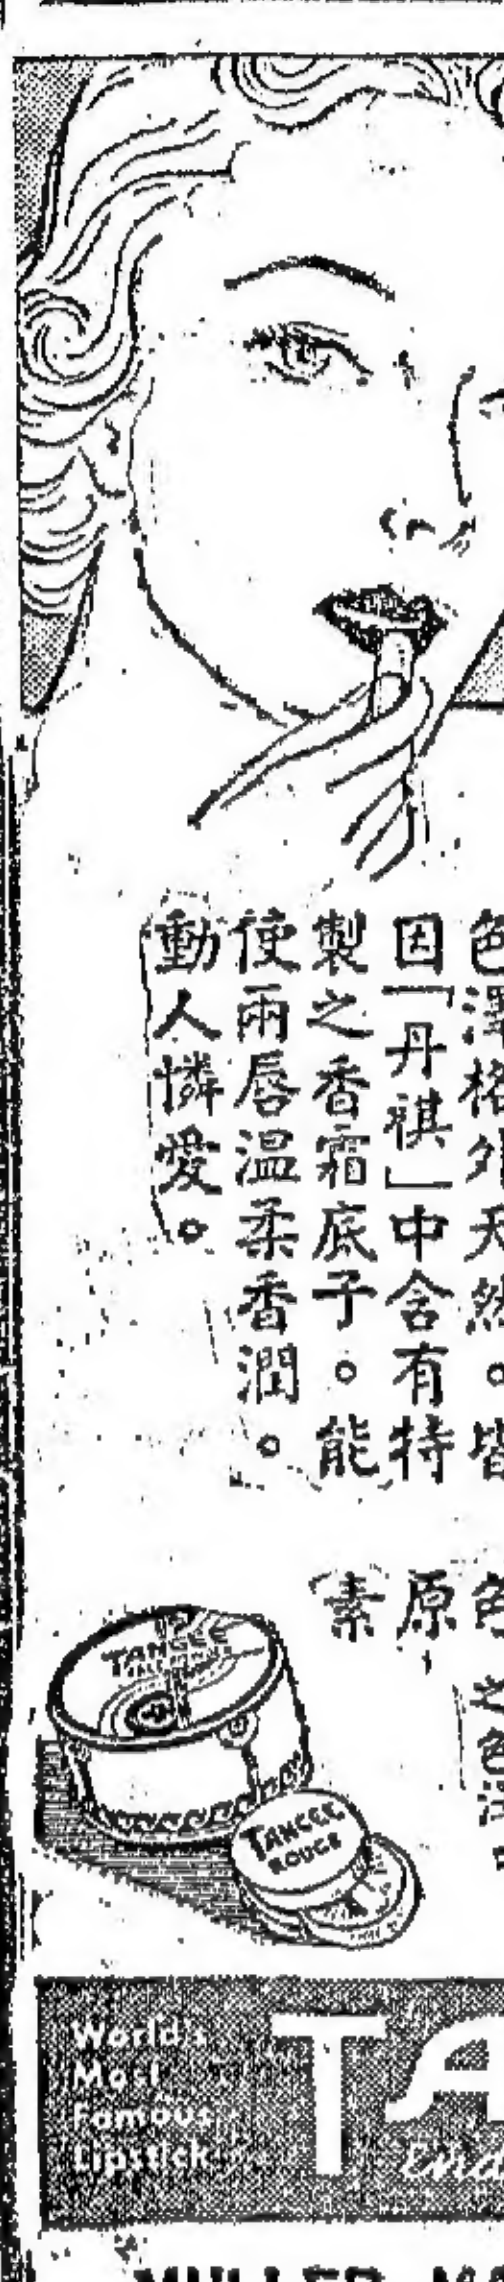 色澤格外天然。皆
因「丹祺」中含有特
製之香霜底子。能
使兩唇温柔香潤。
動人憐愛。
原
素
TANGEE
TANGEE
ROUGE
World's
Most
Famous
Lipstick
TA
MULLER